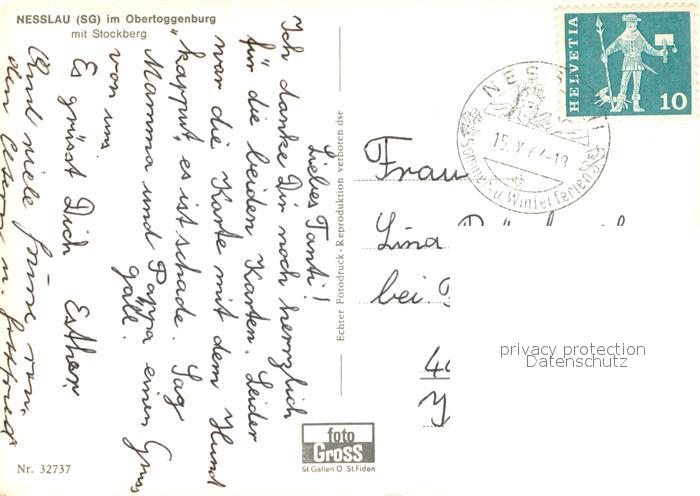 NESSLAU (SG) im Obertoggenburg
mit Stockberg
Liebes Tanti!
Ich danke Dir noch herzlich
für die beiden Karten. Leider
war die Karte mit dem Hund
"kapput, es ist schade. Sag
Mamma und Pappa einen Gruss
von uns
gälle.
Es grüsst Dich Esther.
Und viele Grüsse von
den Eltern u. Gottfried
Echter Fotodruck - Reproduktion verboten dse
HELVETIA
10
NES
15. V
-18
Sommer- u. Winterferien
Frau
Lina
bei
foto
Gross
St Gallen O St. Fiden
Nr. 32737
privacy protection
Datenschutz